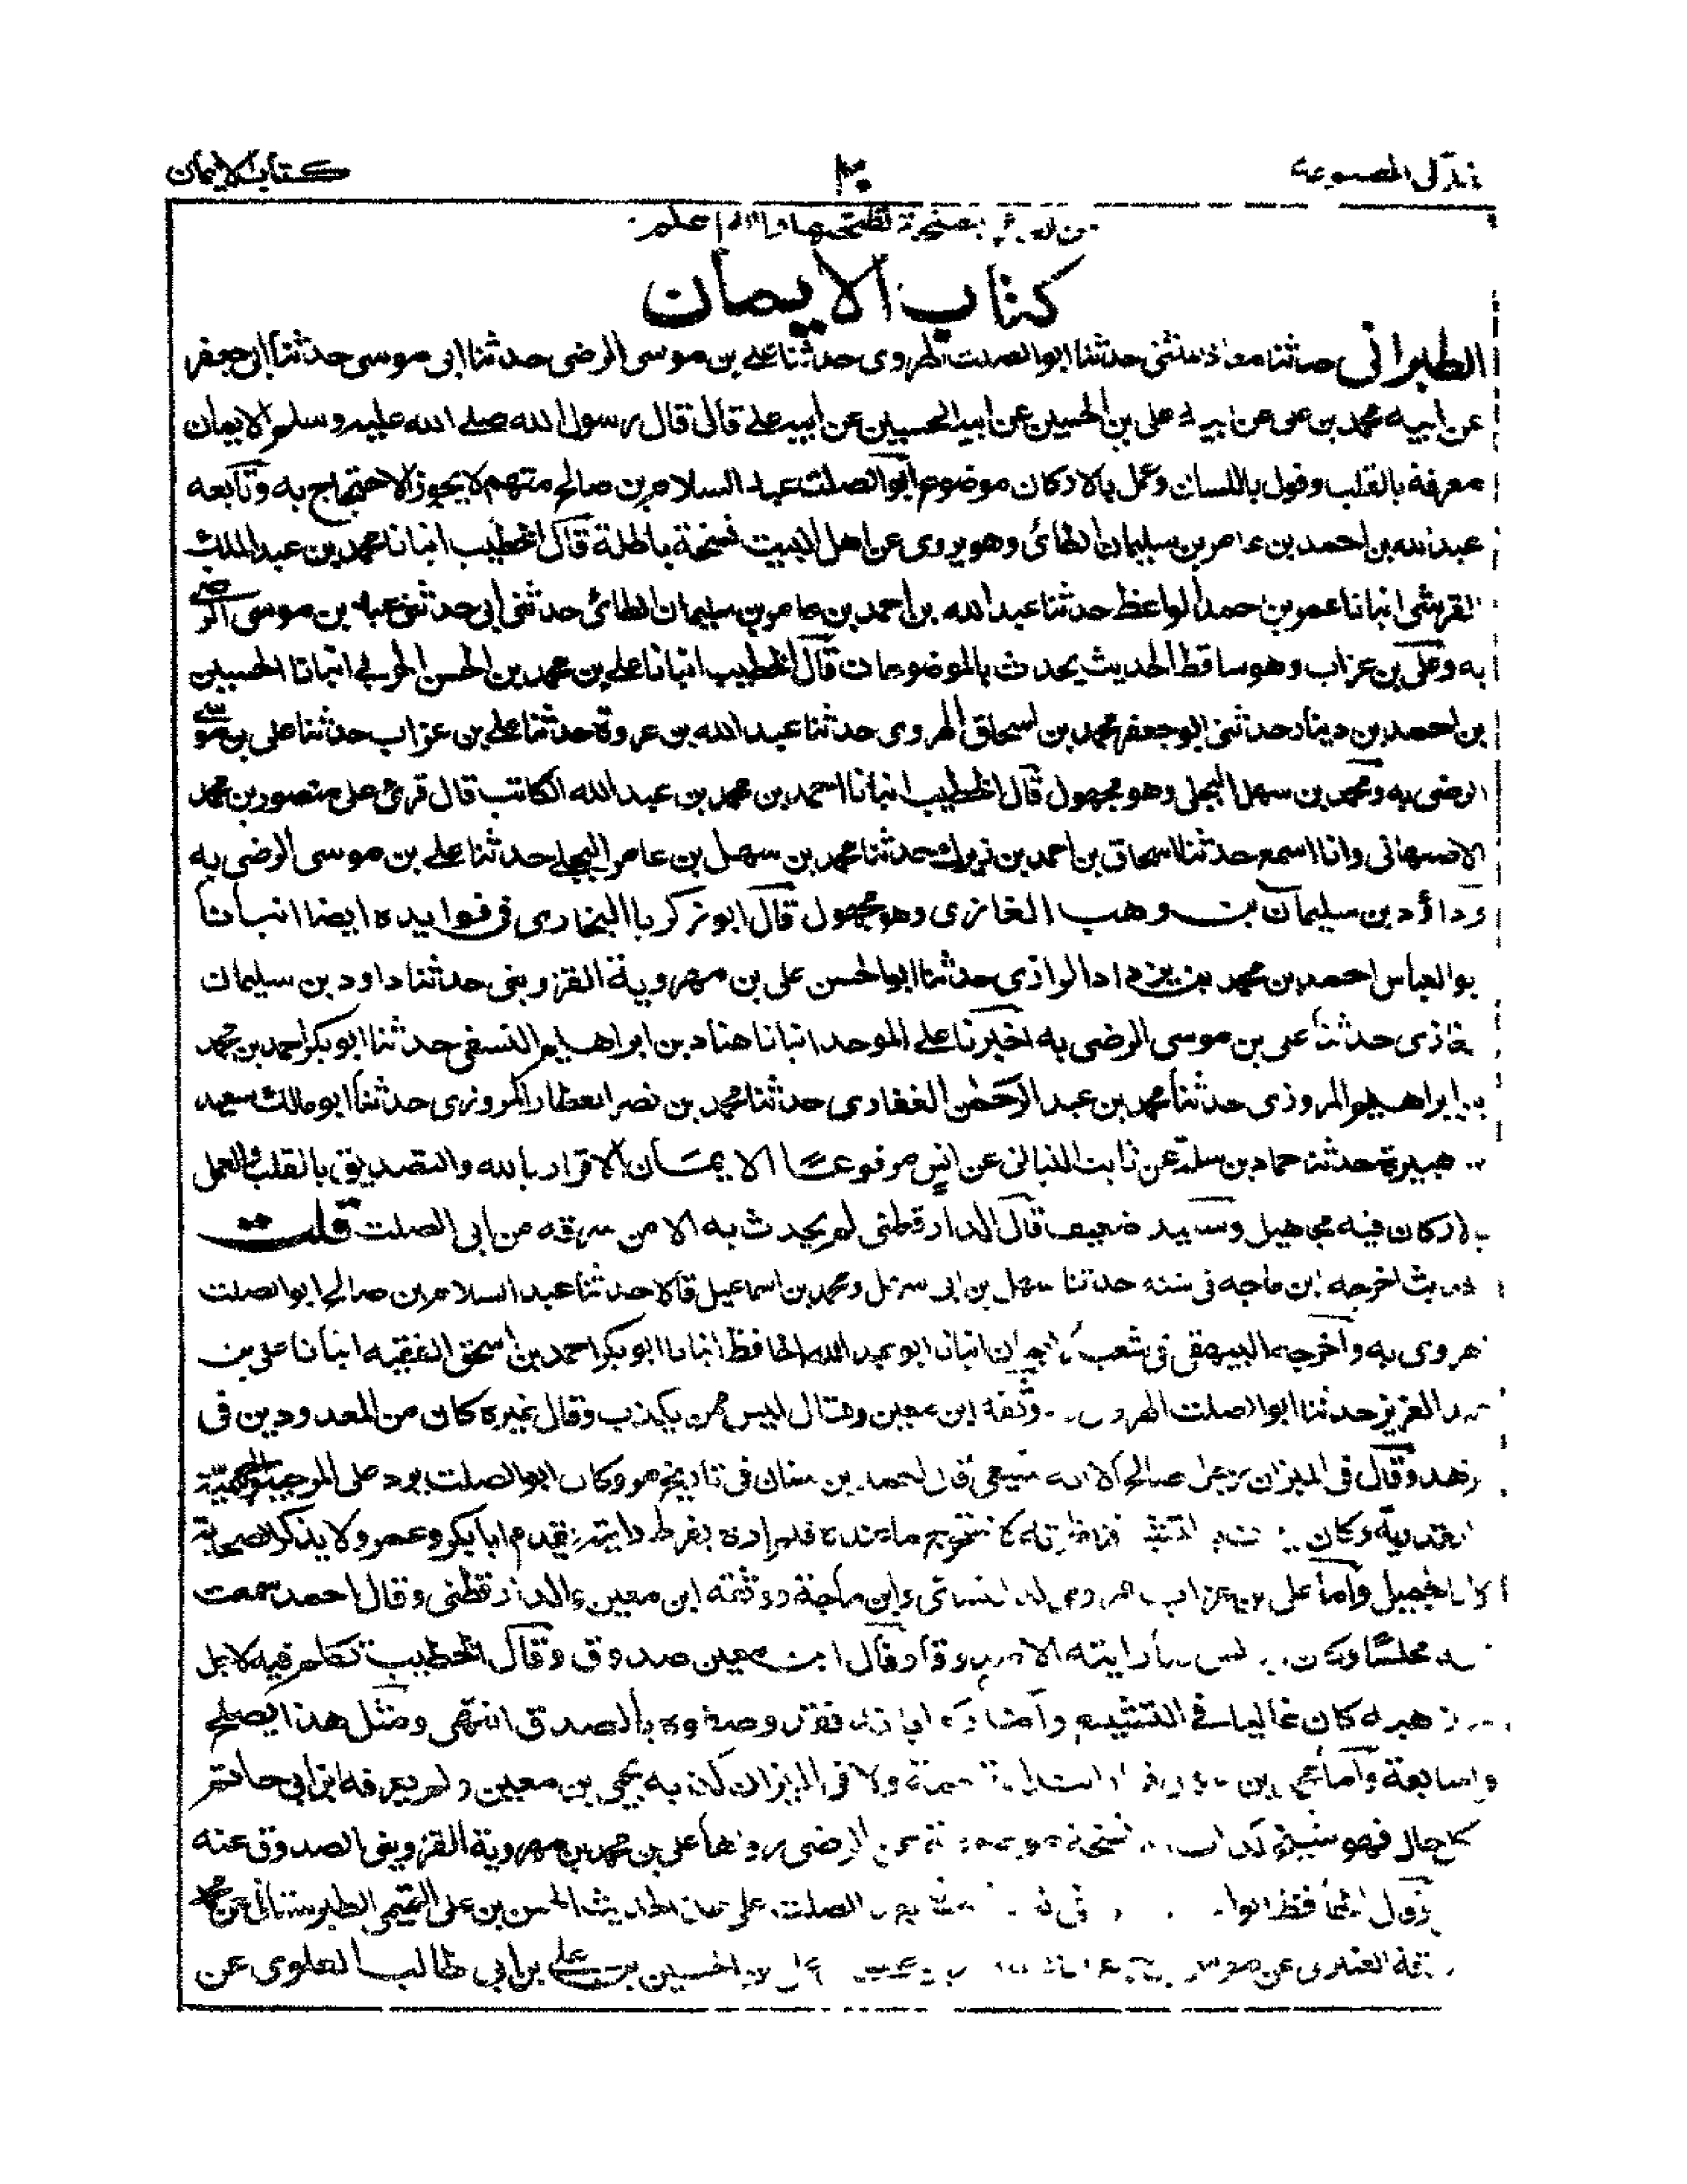 كتاب الايمان
٢٠
كتاب الايمان
الطبرانى حدثنا معاذ بن مثنى حدثنا ابو الصلت الهروى حدثنا على بن موسى الرضى حدثنا ابى موسى حدثنا ابى جعفر
عن ابيه محمد بن على عن ابيه على بن الحسين عن ابيه الحسين عن ابيه على قال قال رسول الله صلى الله عليه وسلم الايمان
معرفة بالقلب وقول باللسان وعمل بالاركان موضوع ابو الصلت عبد السلام بن صالح متهم لا يجوز الاحتجاج به وتابعه
عبد الله بن احمد بن عامر بن سليمان الطائى وهو يروى عن اهل البيت نسخة باطلة قال الخطيب انبانا محمد بن عبد الملك
القرشى انبانا عمر بن احمد الواعظ حدثنا عبد الله بن احمد بن عامر بن سليمان الطائى حدثنى ابى حدثنى على بن موسى الرضى
به وعلى بن غراب وهو ساقط الحديث يحدث بالموضوعات قال الخطيب انبانا على بن محمد بن الحسن الحربى انبانا الحسين
بن احمد بن دينار حدثنى ابو جعفر محمد بن اسحاق الهروى حدثنا عبد الله بن عروة حدثنا على بن غراب حدثنا على بن موسى
الرضى به ومحمد بن سهل البجلى وهو مجهول قال الخطيب انبانا احمد بن محمد بن عبد الله الكاتب قال قرئ على منصور بن محمد
الاصبهانى وانا اسمع حدثنا اسحاق بن احمد بن زيرك حدثنا محمد بن سهل بن عامر البجلى حدثنا على بن موسى الرضى به
وداؤد بن سليمان بن وهب الغازى وهو مجهول قال ابو زكريا البخارى فى فوايده ايضا انبانا
بو العباس احمد بن محمد بن يزداد الرازى حدثنا ابو الحسن على بن مهروية القزوينى حدثنا داود بن سليمان
غازى حدثنا على بن موسى الرضى به اخبرنا على الموحد انبانا هناد بن ابراهيم النسفى حدثنا ابو بكر احمد بن محمد
بن ابراهيم المروزى حدثنا محمد بن عبد الرحمٰن الغفارى حدثنا محمد بن نصر العطار المروزى حدثنا ابو مالك سعيد
بن هبيرة حدثنا حماد بن سلمة عن ثابت البنانى عن انس مرفوعا الايمان الاقرار بالله والتصديق بالقلب والعمل
بالاركان فيه مجاهيل وسعيد ضعيف قال الدارقطنى لم يحدث به الا من سرقه من ابى الصلت قلت
الحديث اخرجه ابن ماجه فى سننه حدثنا سهل بن ابى سهل ومحمد بن اسماعيل قالا حدثنا عبد السلام بن صالح ابو الصلت
هروى به واخرجه البيهقى فى شعب الايمان انبانا ابو عبد الله الحافظ انبانا ابو بكر احمد بن اسحق الفقيه انبانا على بن
عبد العزيز حدثنا ابو الصلت الهروى وثقه ابن معين وقال ليس ممن يكذب وقال غيره كان من المعدودين فى
زهد وقال فى الميزان رجل صالح الا انه شيعى قال احمد بن سنان فى تاريخ مرو كان ابو الصلت يرد على المرجية والجهمية
القدرية وكان فلم اره يفرط رايته يقدم ابا بكر وعمر ولا يذكر الصحابة
الا بالجميل واما على بن غراب فروى له النسائى وابن ماجة ووثقه ابن معين والدارقطنى وقال احمد سمعت
منه مجلسا وكان يدلس ما رايته الا صدوقا وقال ابن معين صدوق وقال الخطيب تكلم فيه لاجل
مذهبه كان غاليا فى التشيع واما فقد وصفوه بالصدق انتهى ومثل هذا يصلح
واما ولا فى الميزان كذبه يحيى بن معين ولم يعرفه ابن ابى حاتم
كل حال فهو شيخ كذاب نسخة موضوعة عن الرضى رواها على بن محمد بن مهروية القزوينى الصدوق عنه
الصلت على هذا الحديث الحسن بن على التميمى الطبرستانى عن محمد
بن الحسين بن على بن ابى طالب العلوى عن